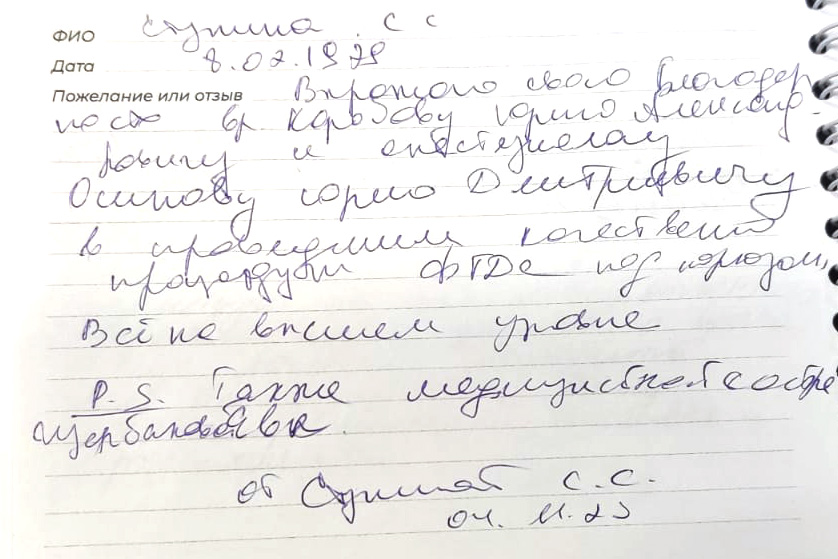 ФИО Ступина С С
Дата 8.02.1979
Пожелание или отзыв Выражаю свою благодар
ность вр Карбову Юрию Александ-
ровичу и анестезиологу
Осипову Юрию Дмитриевичу
в проведении качественной
процедуры ФГДС под наркозом,
Всё на высшем уровне
P.S. Также медицинской сестре
Щербаковой
от Ступиной С.С.
04.11.23